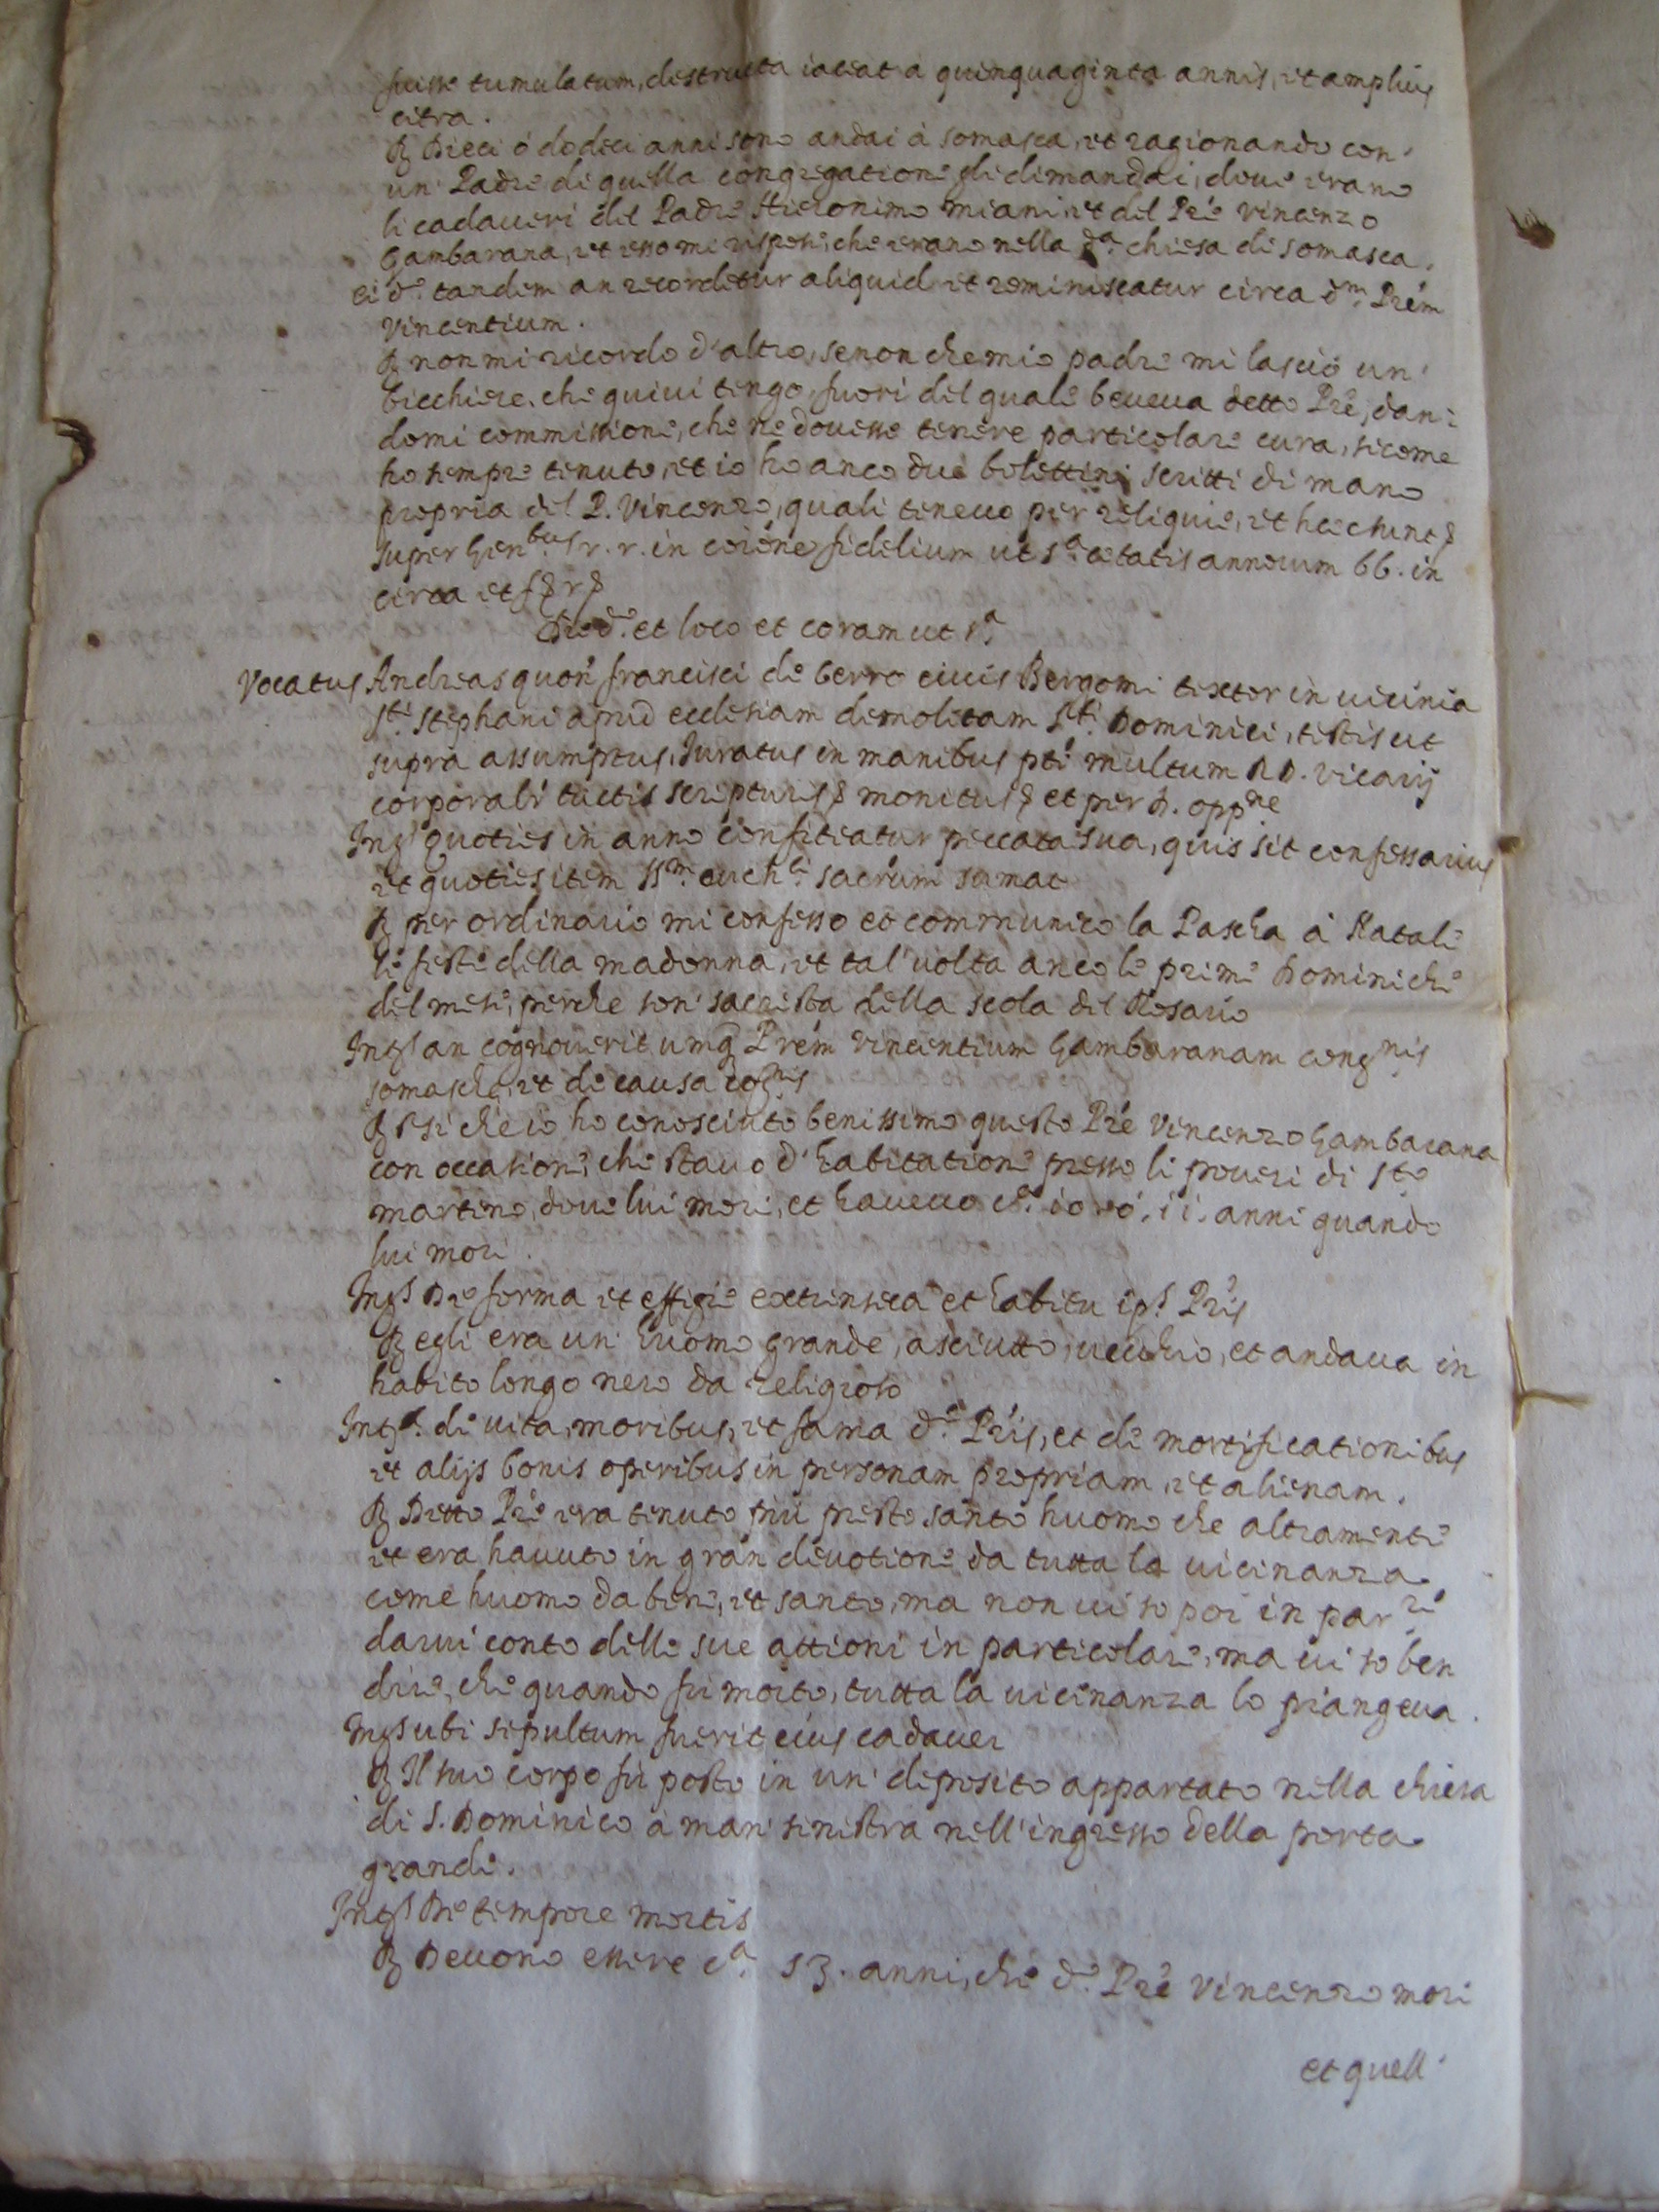 fuisse tumulatum, destructa iaceat a quinquaginta annis, et amplius
citra.
R Dieci ò dodeci anni sono andai à somasca, et ragionando con'
un' Padre di quella congregatione gli dimandai, dove erano
li cadaveri del Padre Hieronimo miani, et del Prè vincenzo
Gambarana, et esso mi rispose, che erano nella da. chiesa di somasca.
ei do. tandem an recordetur aliquid et reminiscatur circa dm. Prém
Vincentium.
R non mi ricordo d'altro, se non che mio padre mi lasciò un'
bicchiere, che quivi tengo, fuori del quale beveva detto Prè, dan:
domi commissione, che ne dovesse tenere particolare cura, sicome
ho sempre tenuto, et io ho anco due bolettini scritti di mano
propria del P. Vincenzo, quali tenevo per reliquie, et hec
super Gen.bus r. r. in corone fidelium ut sa. aetatis annorum 66. in
circa et
Die do. et loco et coram ut sa
Vocatus Andreas quon' francisci de berro civis Bergomi textor in vicinia
sti. Stephani apud ecclesiam demolitam sti. Dominici, testis ut
supra assumptus, Iuratus in manibus pti multum R D. vicarij
corporalr tactis scripturis monitus et per D. oppne
Ints quoties in anno confiteatur peccata sua, quis sit confessarius
et quoties item ssm. euchi. sacrum sumat
R per ordinario mi confesso et communico la Pascha à Natale
le feste della madonna, et tal'volta anco le prime Dominiche
del mese, perche son' sacrista della scola del Rosario
Ints an cognoverit umq Prém Vincentium Gambaranam congnis
somasche, et de causa cognis
R Si che io ho conosciuto benissimo questo Prè Vincenzo Gambarana
con occasione, che stavo d'habitatione presso li poveri di Sto
martino, dove lui morì, et havevo ca. 10 vo' 11. anni quando
lui morì.
Ints De forma et effigie extrinseca et habitu ips Pris
R egli era un' huomo grande, asciutto, vecchio, et andava in
habito longo nero da religioso
Ints. de vita, moribus, et fama di. Pris, et de mortificationibus
et alijs bonis operibus in personam propriam, et alienam.
R Detto Prè era tenuto più presto santo huomo che altramente
et era havuto in gran' devotione da tutta la vicinanza
come huomo da bene, et santo, ma non vi so poi in parre
darvi conto delle sue attioni in particolare, ma vi so ben
dire, che quando fù morto, tutta la vicinanza lo piangeva.
Ints ubi sepultum fuerit eius cadaver
R Il suo corpo fù posto in un' deposito appartato nella chiesa
di S. Dominico à man' sinistra nell'ingresso della porta
grande.
Ints De tempore mortis
R Devono essere ca. 53. anni, che do. Prè Vincenzo morì
et quell'